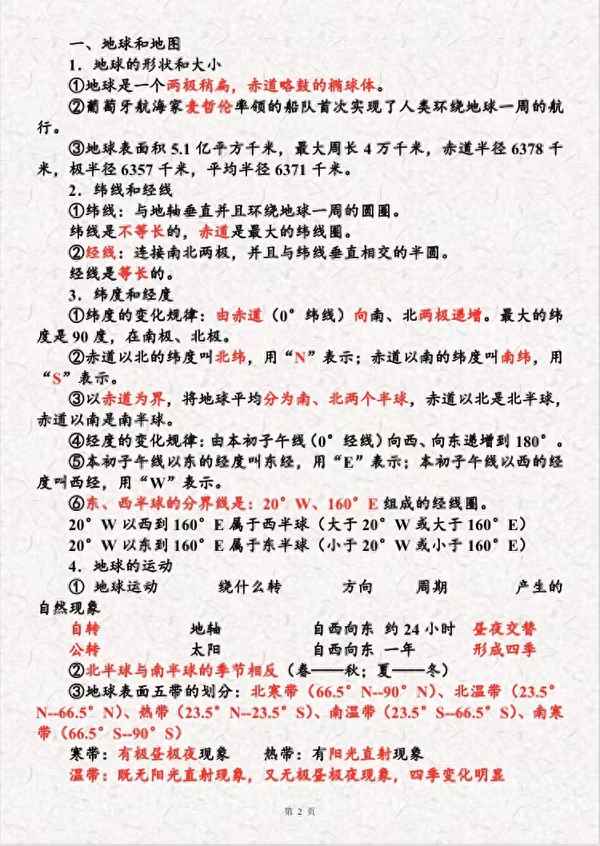 一、地球和地图
1．地球的形状和大小
①地球是一个两极稍扁，赤道略鼓的椭球体。
②葡萄牙航海家麦哲伦率领的船队首次实现了人类环绕地球一周的航
行。
③地球表面积 5.1 亿平方千米，最大周长 4 万千米，赤道半径 6378 千
米，极半径 6357 千米，平均半径 6371 千米。
2．纬线和经线
①纬线：与地轴垂直并且环绕地球一周的圆圈。
纬线是不等长的，赤道是最大的纬线圈。
②经线：连接南北两极，并且与纬线垂直相交的半圆。
经线是等长的。
3．纬度和经度
①纬度的变化规律：由赤道（0°纬线）向南、北两极递增。最大的纬
度是 90 度，在南极、北极。
②赤道以北的纬度叫北纬，用“N”表示；赤道以南的纬度叫南纬，用
“S”表示。
③以赤道为界，将地球平均分为南、北两个半球，赤道以北是北半球，
赤道以南是南半球。
④经度的变化规律：由本初子午线（0°经线）向西、向东递增到 180°。
⑤本初子午线以东的经度叫东经，用“E”表示；本初子午线以西的经
度叫西经，用“W”表示。
⑥东、西半球的分界线是：20°W、160°E 组成的经线圈。
20°W 以西到 160°E 属于西半球（大于 20°W 或大于 160°E）
20°W 以东到 160°E 属于东半球（小于 20°W 或小于 160°E）
4．地球的运动
① 地球运动 绕什么转 方向 周期 产生的
自然现象
自转 地轴 自西向东 约 24 小时 昼夜交替
公转 太阳 自西向东 一年 形成四季
②北半球与南半球的季节相反（春——秋；夏——冬）
③地球表面五带的划分：北寒带（66.5°N--90°N）、北温带（23.5°
N--66.5°N）、热带（23.5°N--23.5°S）、南温带（23.5°S--66.5°S）、南寒
带（66.5°S--90°S）
寒带：有极昼极夜现象 热带：有阳光直射现象
温带：既无阳光直射现象，又无极昼极夜现象，四季变化明显
第 2 页